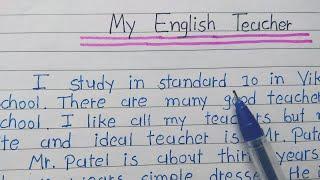 My English Teacher
I study in standard 10 in Vik
school. There are many good teacher
school. I like all my teachers but
te and ideal teacher is Mr. Patel
Mr. Patel is about thir years
years simple dresse He i